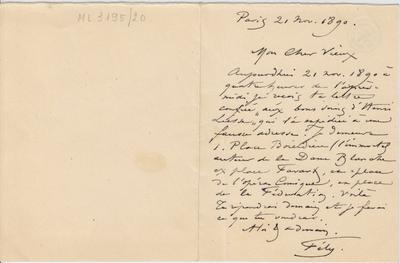 ML 3195/20
Paris 21 nov. 1890.
Mon Cher Vieux
Aujourdhui 21 nov. 1890 à
quatre heures de l'après-
midi, je reçois ta lettre
confiée aux bons soins d'Henri
qui l'a expédiée à une
fausse adresse. Je demeure
1. Place Boieldieu (l'immortel
auteur de la Dame Blanche
ex place Favart, ex place
de l'opéra Comique, ex place
de la Fédération. Voilà
Je répondrai demain et je ferai
ce que tu voudras.
à demain.
Fély.